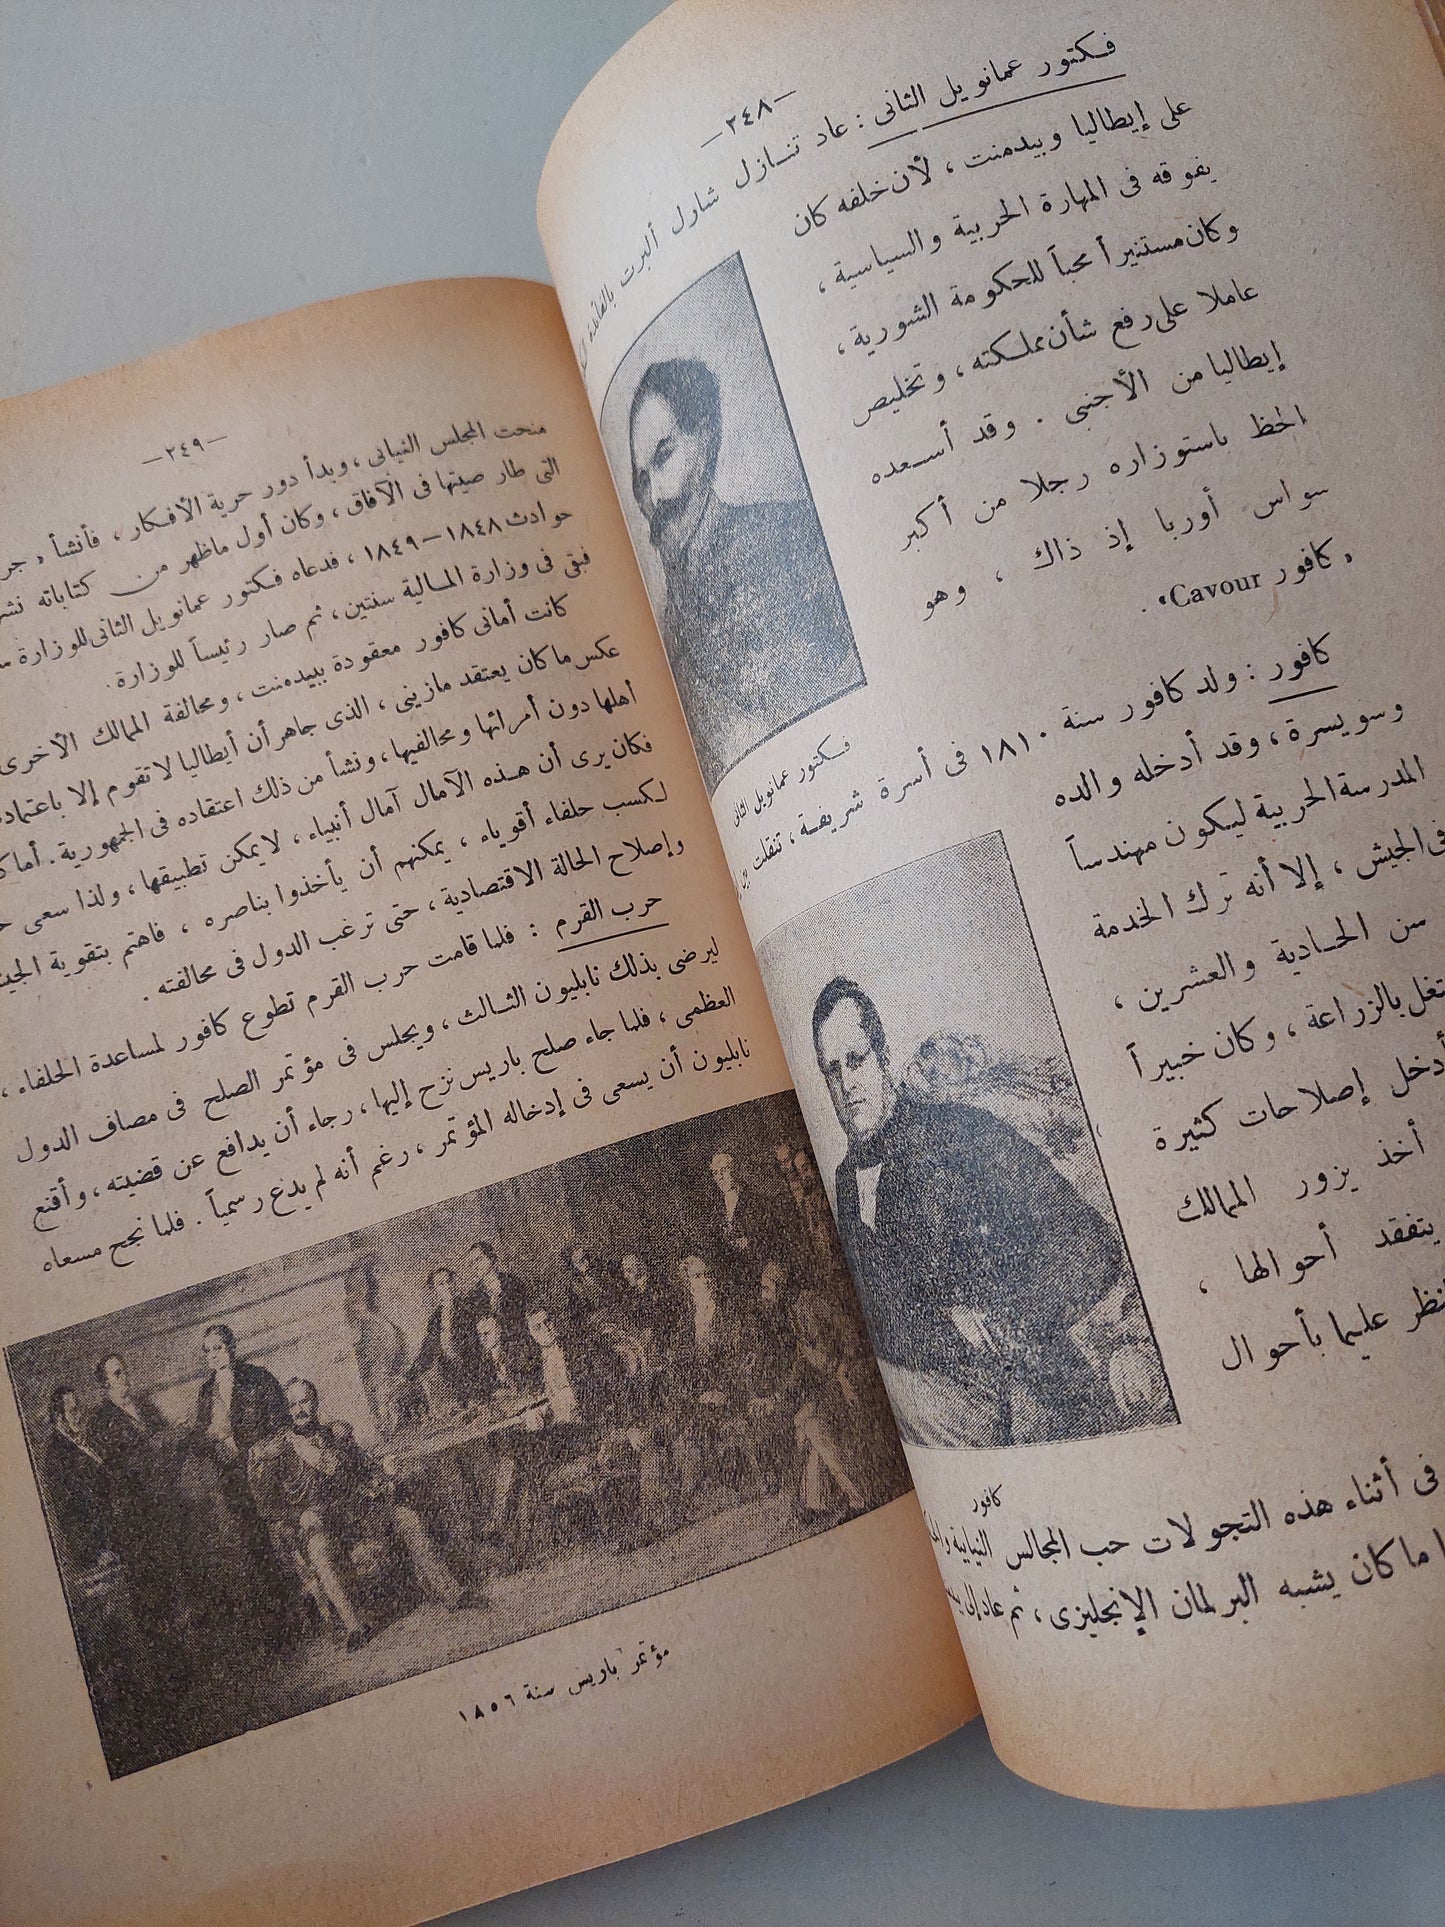 — ٣٤٨ —
فكتور عمانويل الثانى : عاد تنازل شارل ألبرت بالفائدة
على إيطاليا وبيدمنت ، لأن خلفه كان
يفوقه فى المهارة الحربية والسياسية ،
وكان مستنيراً محباً للحكومة الشورية ،
عاملا على رفع شأن مملكته ، وتخليص
إيطاليا من الأجنبى . وقد أسعده
الحظ باستوزاره رجلا من أكبر
سواس أوربا إذ ذاك ، وهو
« كافور Cavour » .
فكتور عمانويل الثانى
كافور : ولد كافور سنة ١٨١٠ فى أسرة شريفة ، تنقلت بين
وسويسرة ، وقد أدخله والده
المدرسة الحربية ليكون مهندساً
فى الجيش ، إلا أنه ترك الخدمة
سن الحادية والعشرين ،
بالزراعة ، وكان خبيراً
إصلاحات كثيرة
أخذ يزور الممالك
يتفقد أحوالها ،
عليما بأحوال
كافور
فى أثناء هذه التجولات حب المجالس النيابية
ما كان يشبه البرلمان الإنجليزى ، ثم عاد إلى
— ٣٤٩ —
منحت المجلس النيابى ، وبدأ دور حرية الأفكار ، فأنشأ «
التى طار صيتها فى الآفاق ، وكان أول ماظهر من كتاباته
حوادث ١٨٤٨ — ١٨٤٩ ، فدعاه فكتور عمانويل الثانى للوزارة
فبقى فى وزارة المالية سنتين ، ثم صار رئيساً للوزارة .
كانت أمانى كافور معقودة ببيدمنت ، ومحالفة الممالك الأخرى
عكس ما كان يعتقد مازينى ، الذى جاهر أن أيطاليا لا تقوم إلا
أهلها دون أمرائها ومحالفيها ، ونشأ من ذلك اعتقاده فى الجمهورية . أما
فكان يرى أن هذه الآمال آمال أنبياء ، لايمكن تطبيقها ، ولذا سعى
لكسب حلفاء أقوياء ، يمكنهم أن يأخذوا بناصره ، فاهتم بتقوية
وإصلاح الحالة الاقتصادية ، حتى ترغب الدول فى محالفته .
حرب القرم : فلما قامت حرب القرم تطوع كافور لمساعدة الحلفاء ،
ليرضى بذلك نابليون الثالث ، ويجلس فى مؤتمر الصلح فى مصاف الدول
العظمى ، فلما جاء صلح باريس نزح إليها ، رجاء أن يدافع عن قضيته ، وأقنع
نابليون أن يسعى فى إدخاله المؤتمر ، رغم أنه لم يدع رسمياً . فلما نجح مسعاه
مؤتمر باريس سنة ١٨٥٦